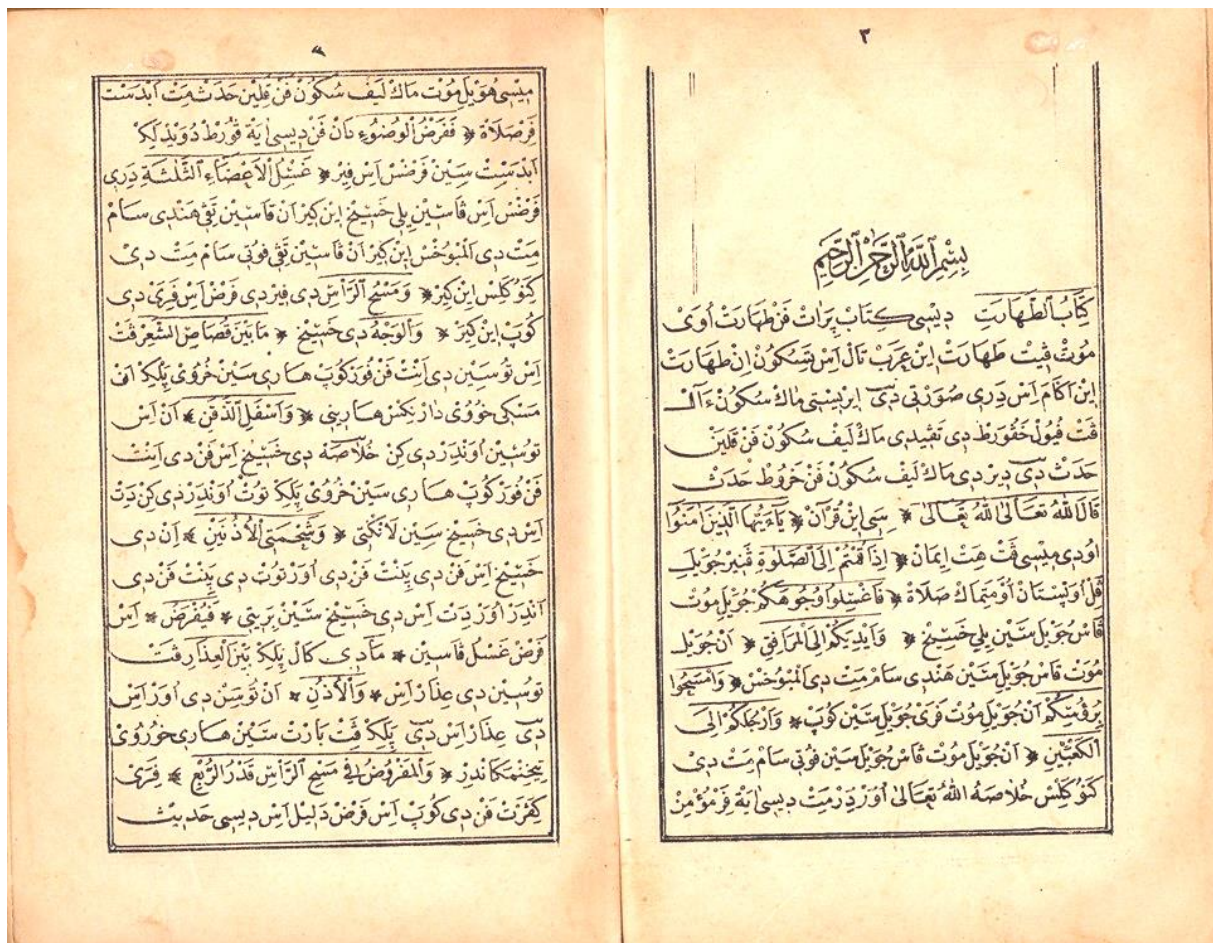 ٣
بِسْمِ ٱللّٰهِ ٱلرَّحْمٰنِ ٱلرَّحِيْمِ
كِتَابُ ٱلطَّهَارَتِ دِيْسِى كِتَابْ پِرَاتْ فَنْ طَهَارَتْ اُووَىْ
مُوْتْ ڤِيْتْ طَهَارَتْ اِينْ عَرَبْ تَالْ اَسْ سُكُوْنْ اِنْ طَهَارَتْ
اِينْ اَكَامْ اَسْ دِرِى صُوْرَتِى دَىْ اِيرِيْسْتِى مَاكْ سُكُوْنْ
ڤَتْ فُيُولْ خَڤُورَطْ دِى تْڤِيْدِى مَاكْ لَيفْ سُكُوْنْ فَنْ قَلَيْنْ
حَدَثْ دَىْ دِيرْدِى مَاكْ لَيفْ سُكُوْنْ فَنْ خَرُوطْ حَدَثْ
قَالَ اللّٰهُ تَعَالٰى اللّٰهُ تَعَالٰى ﴿ سِى اِينْ قُرْاٰنْ ﴿ يَاۤاَيُّهَا الَّذِينَ اٰمَنُوا
اُودِى مِيْسِى ڤَتْ هَتْ اِيمَانْ ﴿ اِذَا قُمْتُمْ اِلَى ٱلصَّلٰوةِ ڤَنِيرْ جُوْيَلِ
ڤِلْ اُوپْسْتَانْ اُوْمْتِمَاكْ صَلَاةْ ﴿ فَاغْسِلُوا وُجُوهَكُمْ جُوْيِلِ مُوتْ
ڤَاسْ جُوْيَلِ سَيْنْ پِلِى خَسِيْخْ ﴿ وَاَيْدِيَكُمْ اِلَى ٱلْمَرَافِقِ ﴿ اَنْ جُوْيَلِ
مُوْتْ ڤَاسْ جُوْيَلِ سَيْنْ هَنْدِى سَامْ مِتْ دِى اَلَمْبُوخْسْ ﴿ وَامْسَحُوا
بِرُؤُسِكُمْ اَنْ جُوْيَلِ مُوتْ فْرَىْ جُوْيَلِ سَيْنْ كُوپْ ﴿ وَاَرْجُلَكُمْ اِلَى
ٱلْكَعْبَيْنِ ﴿ اَنْ جُوْيَلِ مُوْتْ ڤَاسْ جُوْيَلِ سَيْنْ فُوتِى سَامْ مِتْ دِى
كَنَوْكَلِسْ خُلَاصَهْ اَللّٰهُ تَعَالٰى اُوَرْدِرْ مِتْ دِيسِى اٰيَةْ فِرْمُؤْمِنْ
مِيْسِى هُوْيَلِ مُوْتْ مَاكْ لَيفْ سُكُوْنْ فَنْ قَلَيْنْ حَدَثْ مِتْ اٰبْدَسْتْ
فِرْصَلَاةْ ﴿ فَفَرْضُ ٱلْوُضُوْءِ دَانْ فَنْ دِيسِى اٰيَةْ ڤُورْطْ دُوَيْدِلِكْ
اٰبْدَسْتْ سَيْنْ فَرْضْسْ اَسْ فِيْرْ ﴿ غَسْلُ ٱلْاَعْضَاءِ ٱلثَّلٰثَةِ دِرِى
فَرْضْسْ اَسْ ڤَاسْ سَيْنْ پِلِى خَسِيْخْ اِينْ كِيرْ اَنْ ڤَاسْ سَيْنْ تْڤَىْ هَنْدِى سَامْ
مِتْ دِى اَلَمْبُوخْسْ اِينْ كِيرْ اَنْ ڤَاسْ سَيْنْ تْڤَىْ فُوتِى سَامْ مِتْ دِى
كَنَوْكَلِسْ اِينْ كِيرْ ﴿ وَمَسْحُ ٱلرَّأْسِ دِى فِيرْدِى فَرْضْ اَسْ فْرَىْ دِى
كُوپْ اِينْ كِيرْ ﴿ وَٱلْوَجْهُ دِى خَسِيْخْ ﴿ مَا بَيْنَ قُصَاصِ ٱلشَّعْرِ ڤَتْ
اَسْ تُوسَيْنْ دِى اَنْتْ فَنْ فُوْرْ كُوپْ هَارِى سَيْنْ خُرُوْىْ پِلِكْ اَفْ
مَسْكِى خُرُوْىْ دَارْ نِكْسْ هَارِيْنِى ﴿ وَاَسْفَلِ ٱلذَّقَنِ ﴿ اَنْ اَسْ
تُوسَيْنْ اُونْدَرْ دِى كِنْ خُلَاصَهْ دِى خَسِيْخْ اَسْ فَنْ دِى اَنْتْ
فَنْ فُوْرْ كُوپْ هَارِى سَيْنْ خُرُوْىْ پِلِكْ تُوتْ اُونْدَرْ دِى كِنْ دِتْ
اَسْ دِى خَسِيْخْ سَيْنْ لَانْكْتِى ﴿ وَشَحْمَتَىِ ٱلْاُذُنَيْنِ ﴿ اَنْ دِى
خَسِيْخْ اَسْ فَنْ دِى پِنْتْ فَنْ دِى اُوْرْ تُوتْ دِى پِنْتْ فَنْ دِى
اَنْدَرْ اُوْرْ دِتْ اَسْ دِى خَسِيْخْ سَيْنْ بَرَيْتِى ﴿ فَيُفْرَضُ ﴿ اَسْ
فَرْضْ غَسْلْ ڤَاسْ سَيْنْ ﴿ مَا دِى كَالْ پِلِكْ بَيْنَ ٱلْعِذَارِ ڤَتْ
تُوسَيْنْ دِى عِذَارْ اَسْ ﴿ وَٱلْاُذُنِ ﴿ اَنْ تُوسَيْنْ دِى اُوْرْ اَسْ
دَىْ عِذَارْ اَسْ دَىْ پِلِكْ ڤَتْ بَارْتْ سَيْنْ هَارِى خُرُوْىْ
﴿ وَٱلْمَفْرُوضُ فِى مَسْحِ ٱلرَّأْسِ قَدْرُ ٱلرُّبْعِ ﴿ فْرَىْ
كْفَرْتْ فَنْ دِى كُوپْ اَسْ فَرْضْ دَلِيلْ اَسْ دِيسِى حَدِيْثْ